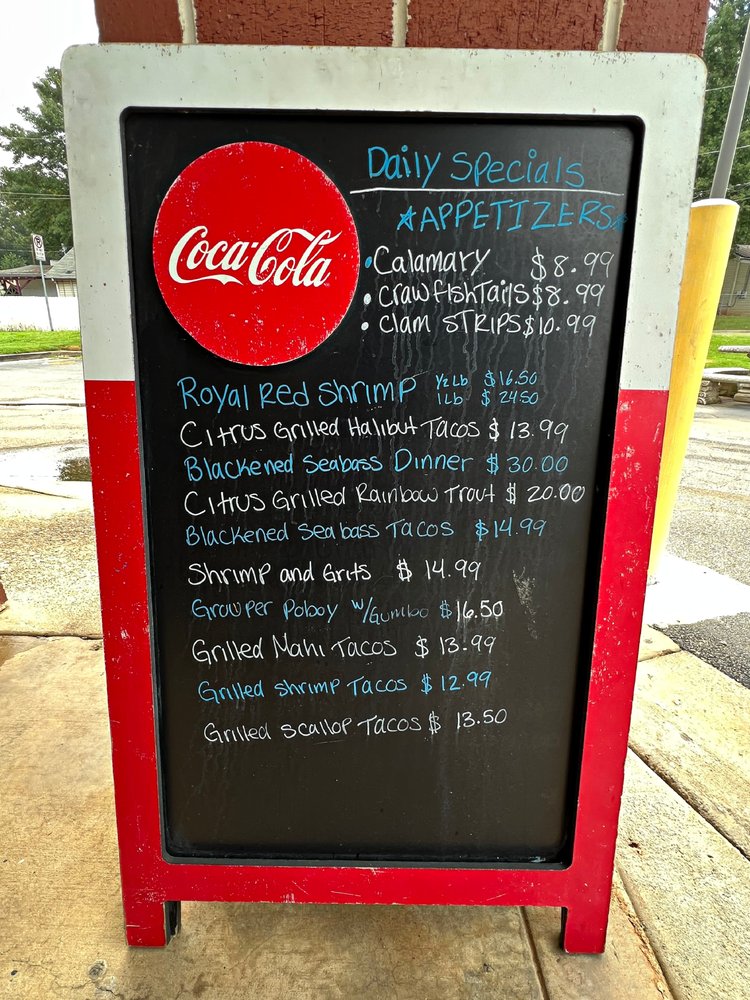 Coca-Cola
Daily Specials
★APPETIZERS★
• Calamary $8.99
• CrawfishTails $8.99
• Clam STRIPS $10.99
Royal Red Shrimp ½ Lb $16.50
1Lb $24.50
Citrus Grilled Halibut Tacos $13.99
Blackened Seabass Dinner $30.00
Citrus Grilled Rainbow Trout $20.00
Blackened Seabass Tacos $14.99
Shrimp and Grits $14.99
Growper Poboy w/Gumbo $16.50
Grilled Mahi Tacos $13.99
Grilled shrimp Tacos $12.99
Grilled scallop Tacos $13.50